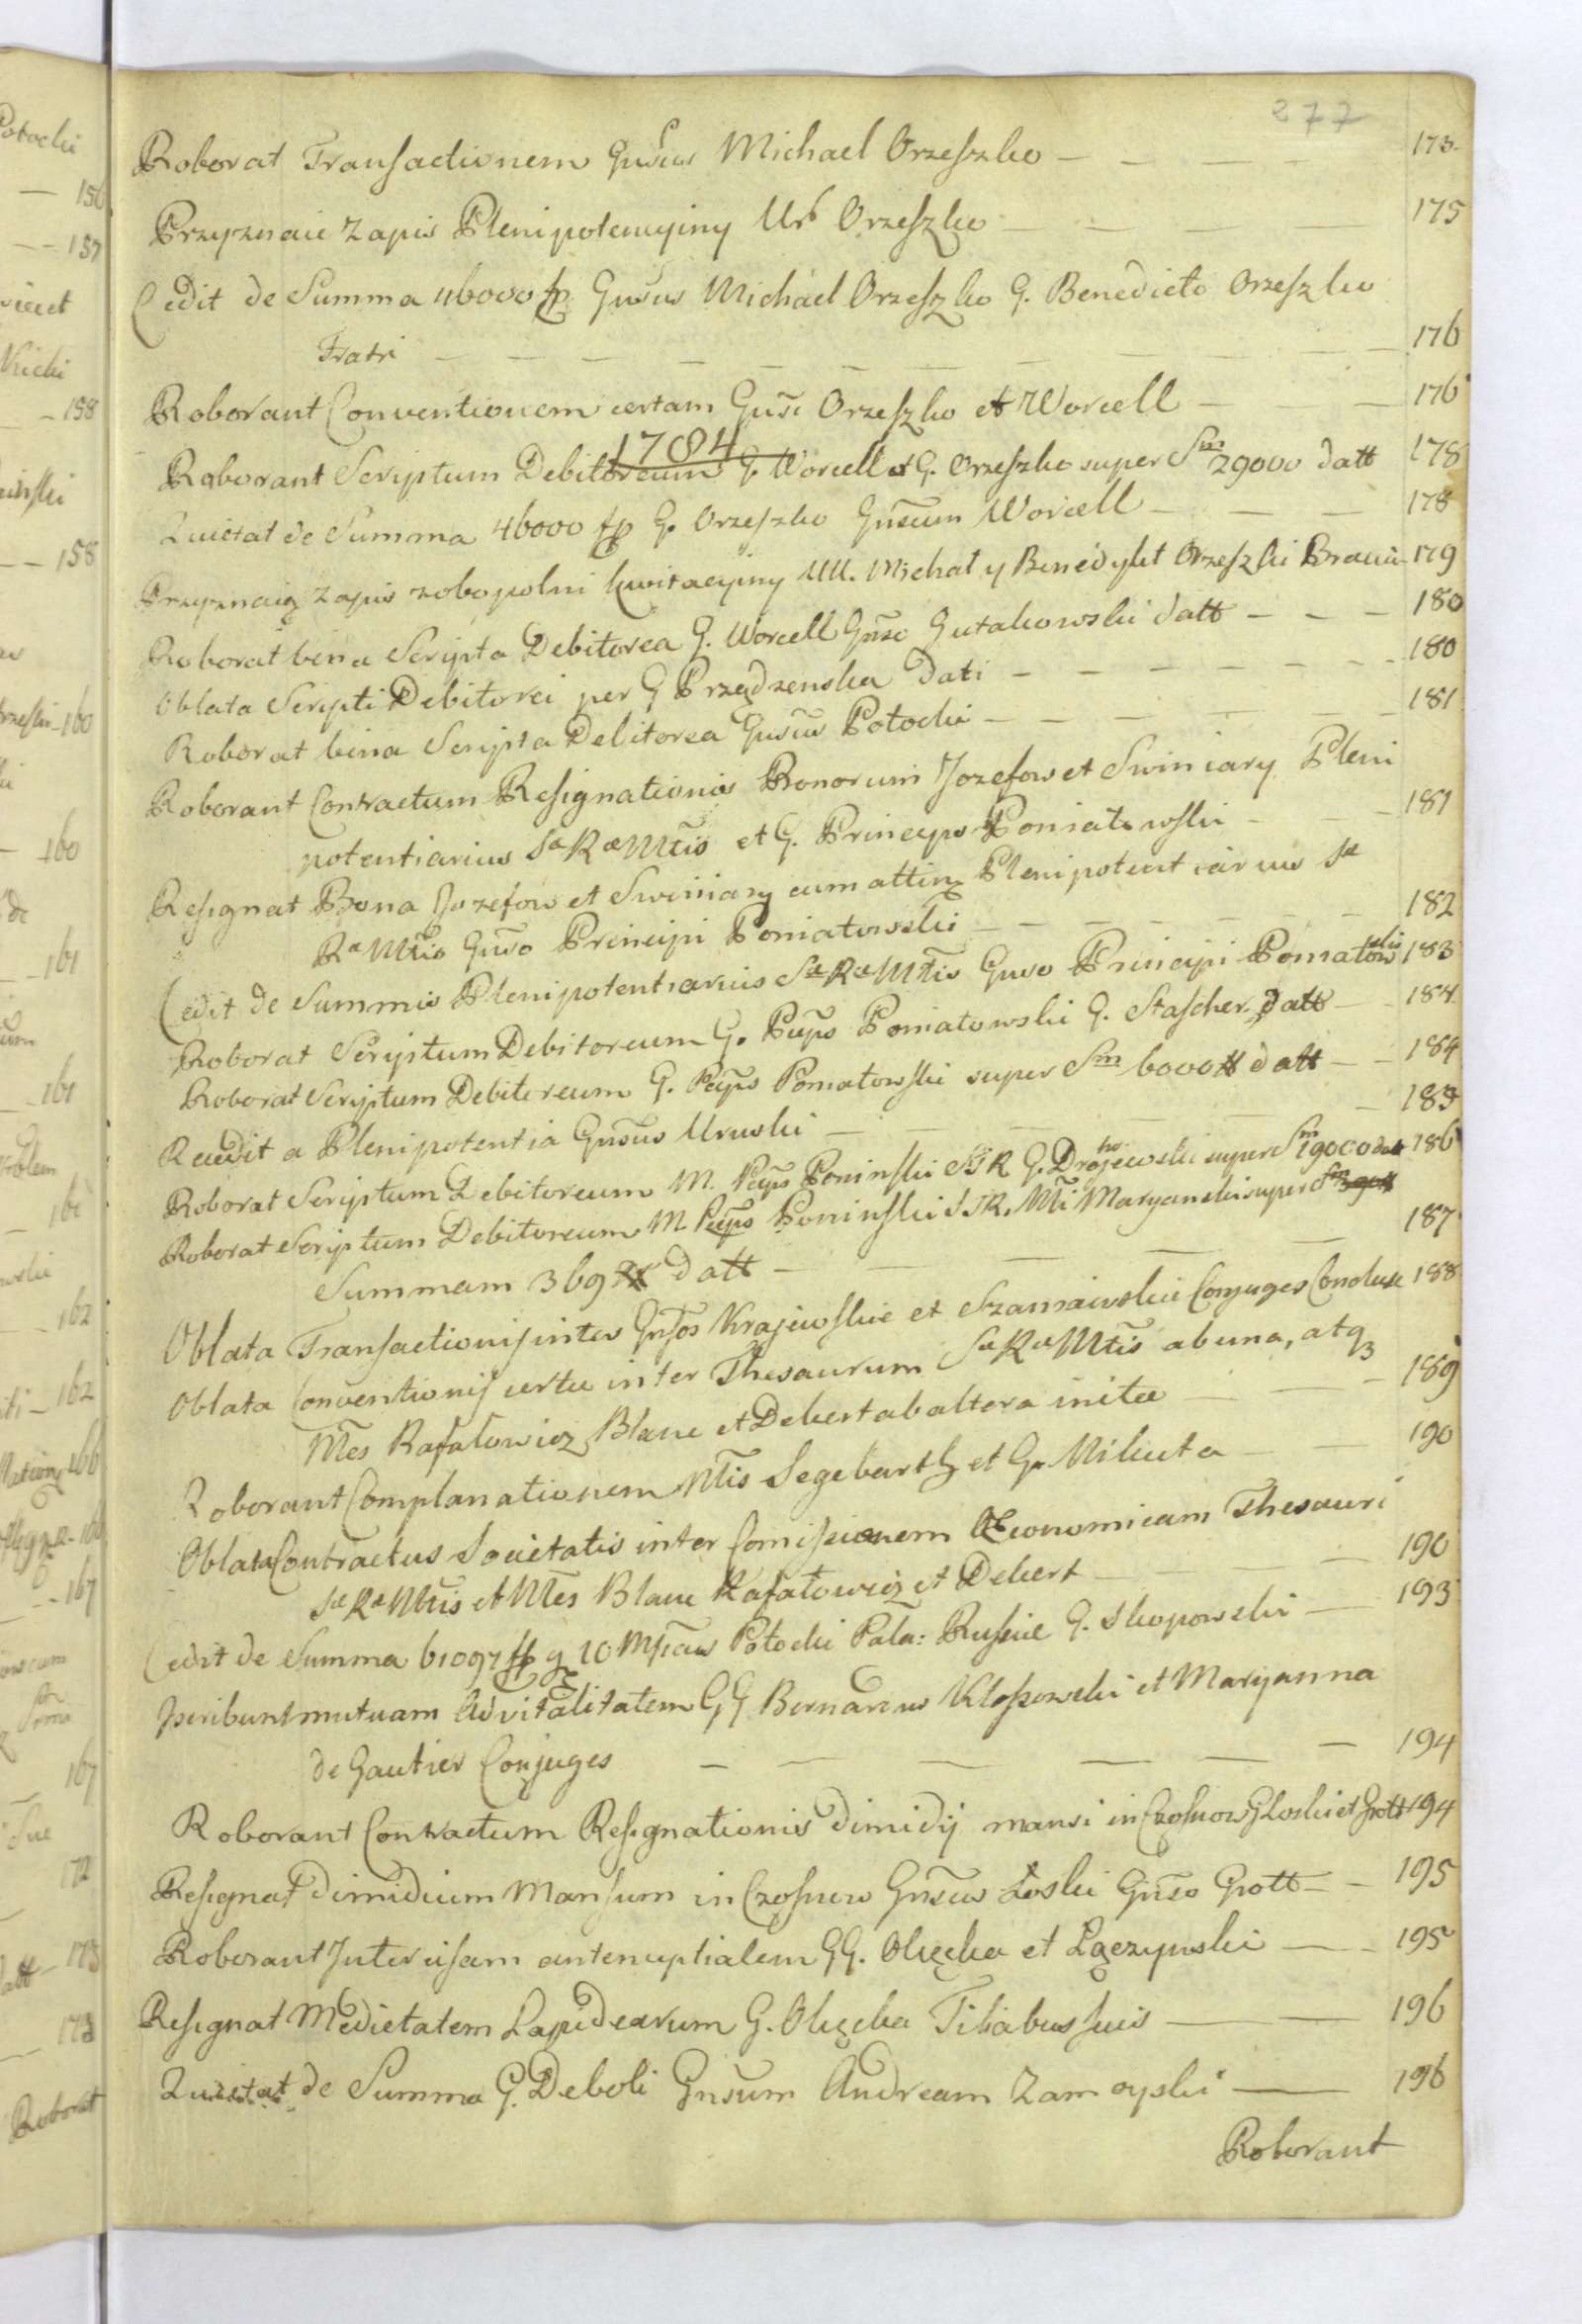 277
Roborat Transactionem Gnsus Michael Orzeszko — — — — 173.
Przyznaie Zapis Plenipotencyiny Ur. Orzeszko — — — — 175
Cedit de Summa 46000 fp Gnsus Michael Orzeszko G. Benedicto Orzeszko
Fratri — — — — — — — — 176
Roborant Conventionem certam Gnsi Orzeszko et Worcell — — — 176
1784
Roborant Scriptum Debitoreum G. Worcell et G. Orzeszko super Sm 29000 datt 178
Quietat de Summa 46000 fp G. Orzeszko Gnsum Worcell — — — 178
Przyznaią Zapis zobopolni kwitacyiny UU. Michał y Benedykt Orzeszki Bracia 179
Roborat bina Scripta Debitorea G. Worcell Gnso Gutakowski datt — — — 180
Oblata Scripti Debitorei per G Prządzenska dati — — — — — — 180
Roborat bina Scripta Debitorea Gnsus Potocki — — — — — — 181
Roborant Contractum Resignationis Bonorum Jozefow et Swiniary Pleni
potentiarius Sæ Ræ Mtis et G. Princeps Poniatowski — — 181
Resignat Bona Jozefow et Swiniary cum attin Plenipotentiarius Sæ
Ræ Mtis Gnso Principi Poniatowski — — — — — — 182
Cedit de Summis Plenipotentiarius Sæ Ræ Mtis Gnso Principi Poniatowski 183
Roborat Scriptum Debitoreum G. Pnps Poniatowski G. Stascher datt — 184
Roborat Scriptum Debitoreum G. Pnps Poniatowski super Sm 6000 # datt — — 184
Recedit a Plenipotentia Gnsus Uruski — — — — — — 185
Roborat Scriptum Debitoreum M. Pnps Poninski SJR G. Drohojewski super Sm 19000 datt 186
Roborat Scriptum Debitoreum M. Pnps Poninski SJR. Mi Maryanski super Sm
Summam 369 # datt — — — — — 187
Oblata Transactionis inter Gnsos Krajewskie et Szaniawskie Conjuges Conclusæ 188
Oblata Conventionis certæ inter Thesaurum Sæ Ræ Mtis ab una, atq3
Mes Rafałowicz Blanc et Dekert ab altera initæ — — — 189
Roborant Complanationem Mtis Segebarth et G. Mikuta — — 190
Oblata Contractus Societatis inter Comissionem Œconomicam Thesauri
Sæ Ræ Mtis et Mes Blanc Rafałowicz et Dekert — — — 190
Cedit de Summa 61097 fp g 10 Potocki Pala: Russiæ G. Skopowski — 193
Inscribunt mutuam Advitalitatem GG Bernardus Kłossowski et Maryanna
de Gautier Conjuges — — — — — — 194
Roborant Contractum Resignationis dimidij mansi in Czosnow G Łoski et Grott 194
Resignat dimidium Mansum in Czosnow Gnsus Łoski Gnso Grott — — 195
Roborant Intercisam antenuptialem GG. Olęcka et Łączynski — — 195
Resignat Medietatem Lapidearum G. Olęcka Filiabus suis — — 196
Quietat de Summa G. Deboli Gnsum Andream Zamoyski — 196
Roborant